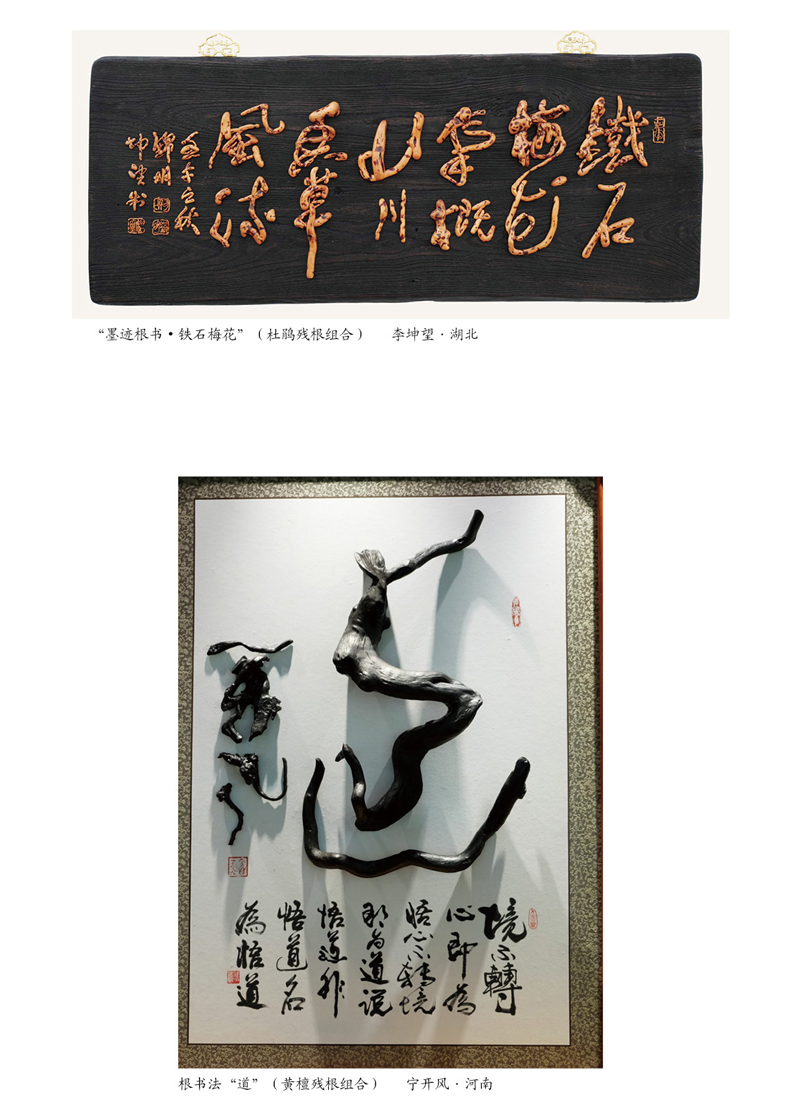 鐵石
梅花
氣概
山川
香草
風流
之秋
坤望书
“墨迹根书·铁石梅花”（杜鹃残根组合） 李坤望·湖北
道
境不轉
心即為
悟心不转境
即为道说
悟道非
悟道名
為悟道
根书法“道”（黄檀残根组合） 宁开风·河南